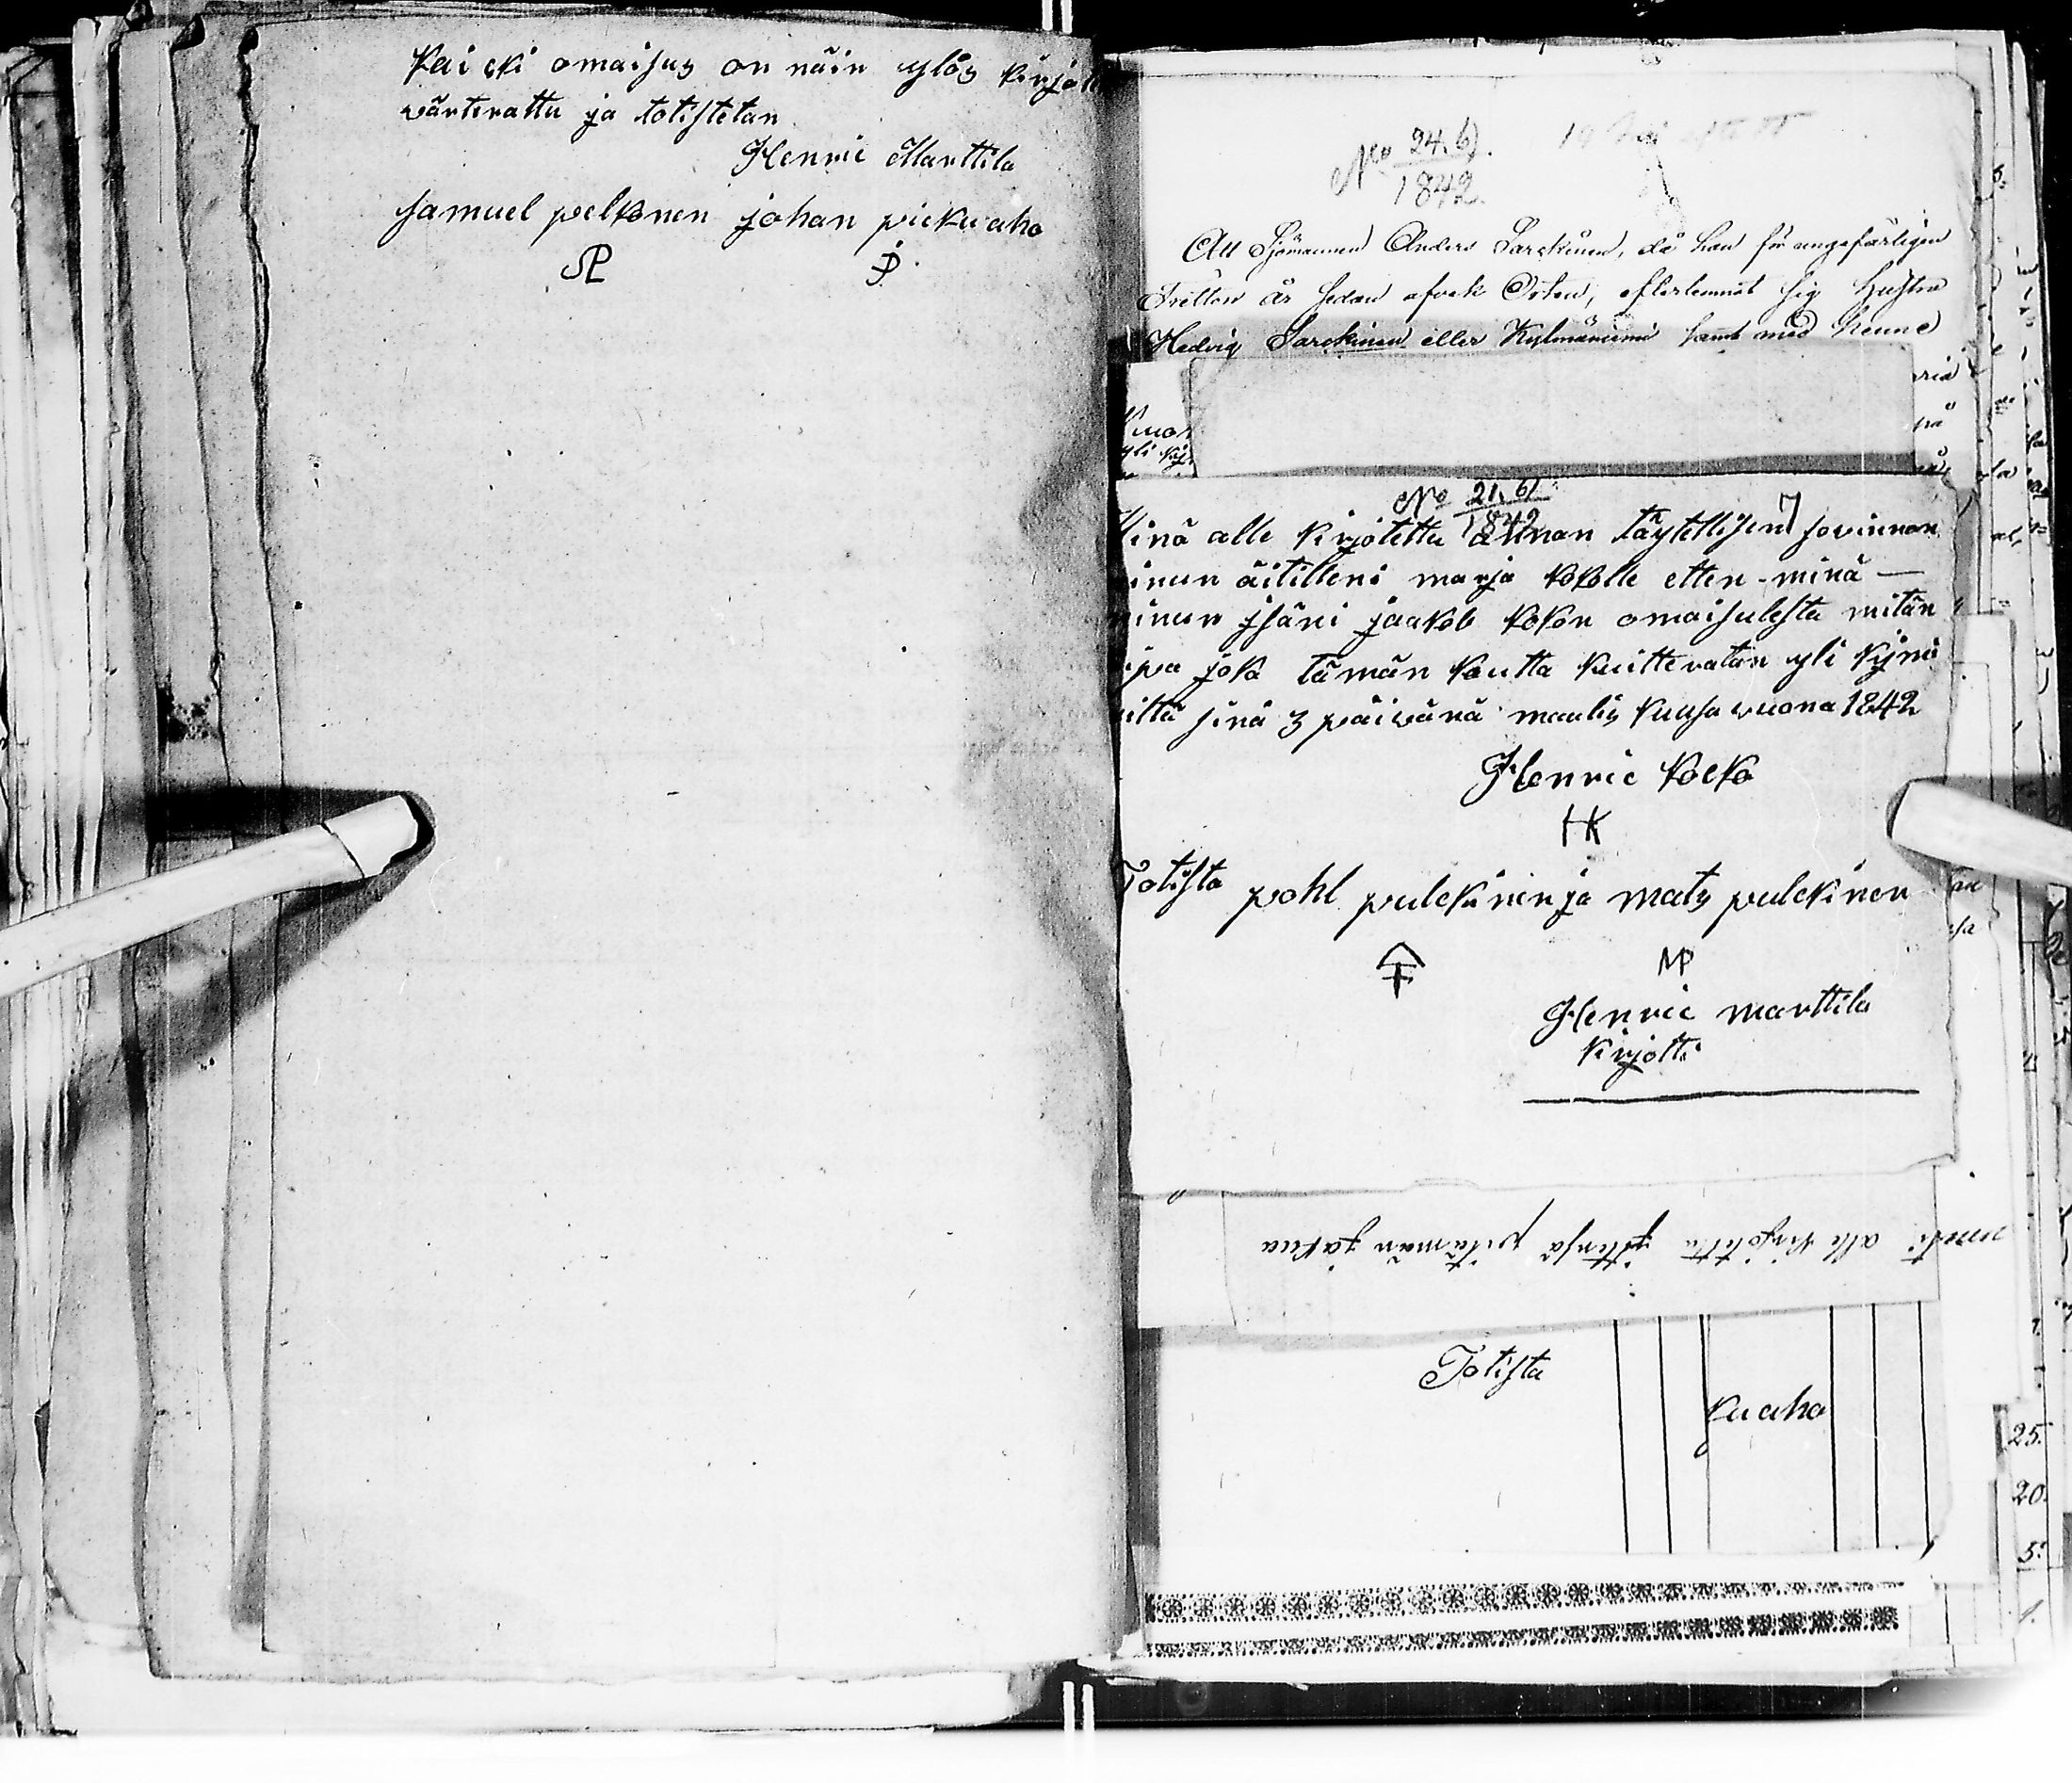 Kaicki omaisus on näin ylös kirjote
värterattu ja totistetan
Henric Marttila
samuel pelkonen johan pickuaho
SP JP
No 24.6).
1842.
Att Sjömannen Anders Sarckinen, då han för ungefärligen
Tretton år sedan afvek Orten, efterlemnat sig Hustru
Hedvig Sarckinen eller Kylmäniemi samt med henne
No 21.6)
1842
Minä alle kirjotettu annan täytellisen sovinnon
minun äitilleni marja kokolle etten minä —
minun isäni jaakob kokon omaisulesta mitän
joka tämän kautta kuitteratan yli kijmi
sinä 3 päivänä maalis kuusa wuona 1842
Henric kocko
HK
Totista pohl pulckinen ja mats pulckinen
MP
Henric marttila
kirjotti
alle kirjotettu ittensä pitämän jakua
Totista
kuaho
25.
20.
5.